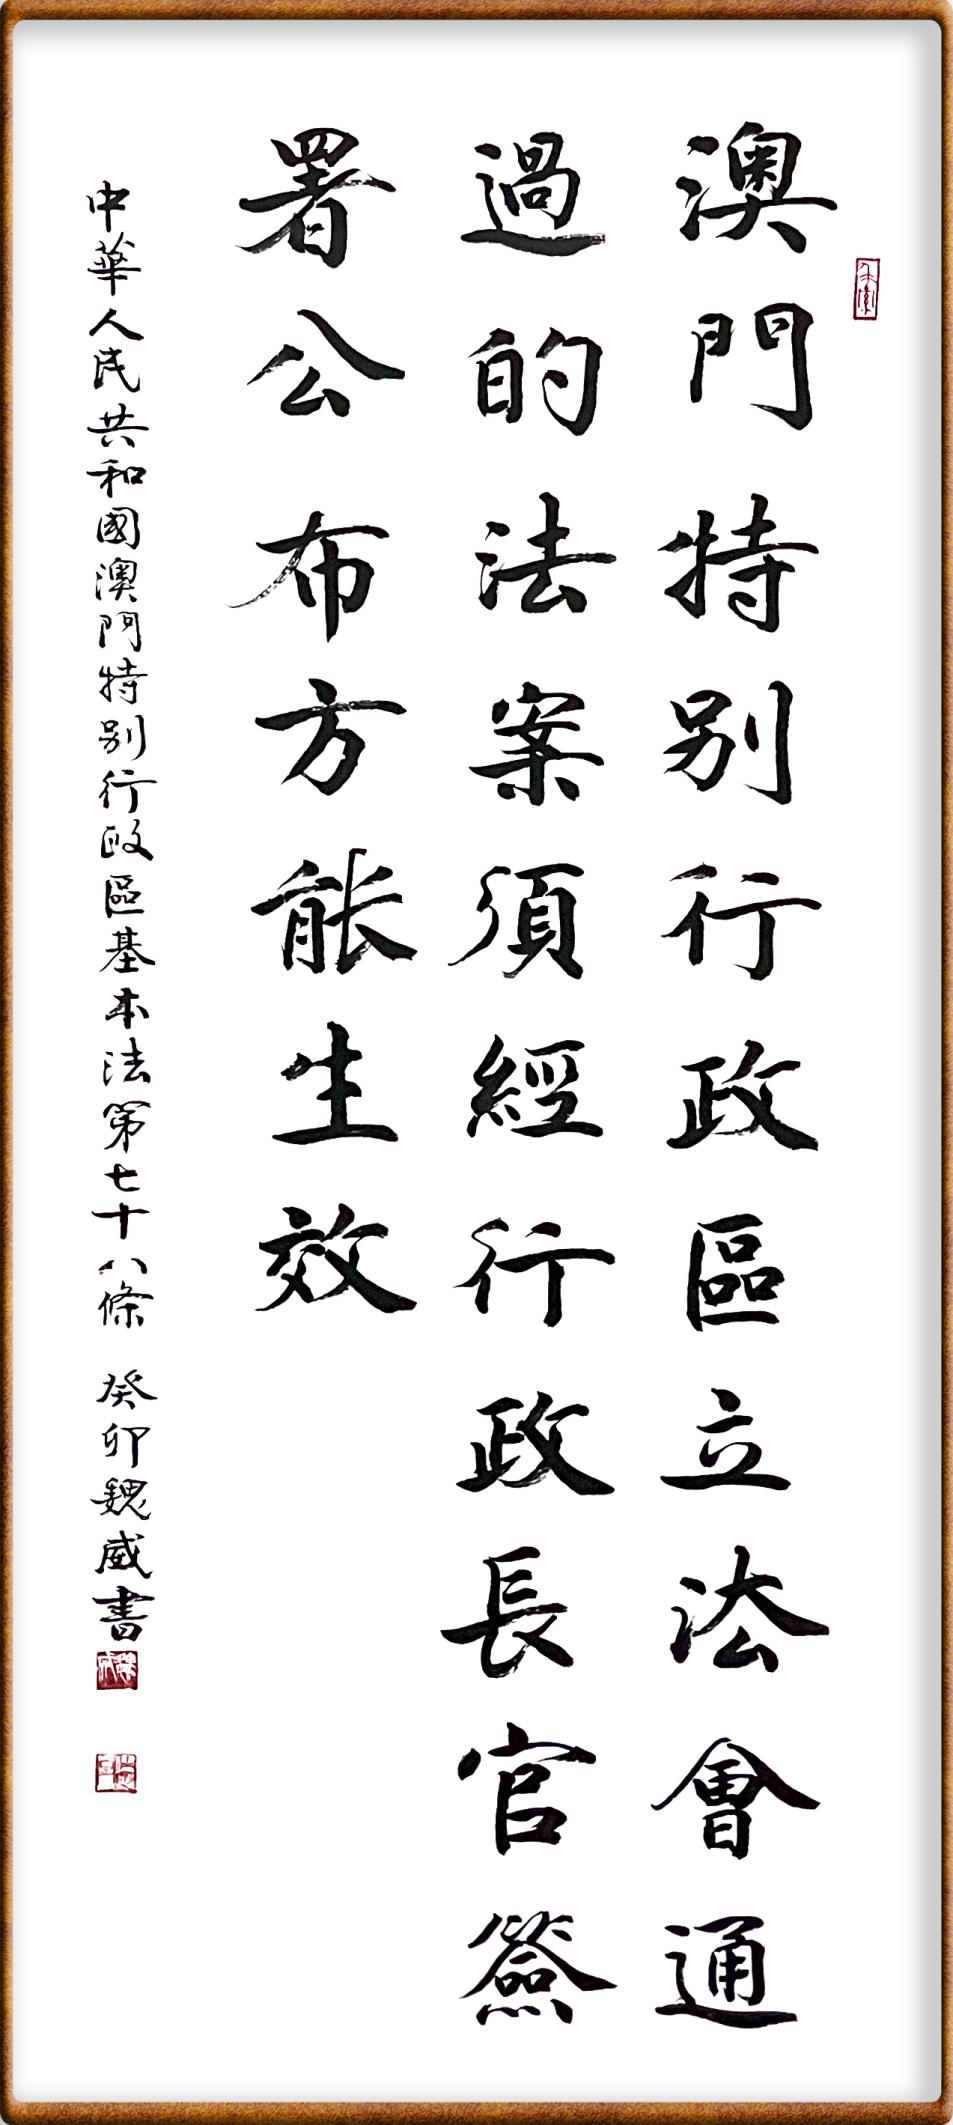 澳門特别行政區立法會通
過的法案須經行政長官簽
署公布方能生效
中華人民共和國澳門特别行政區基本法第七十八條 癸卯魏威書